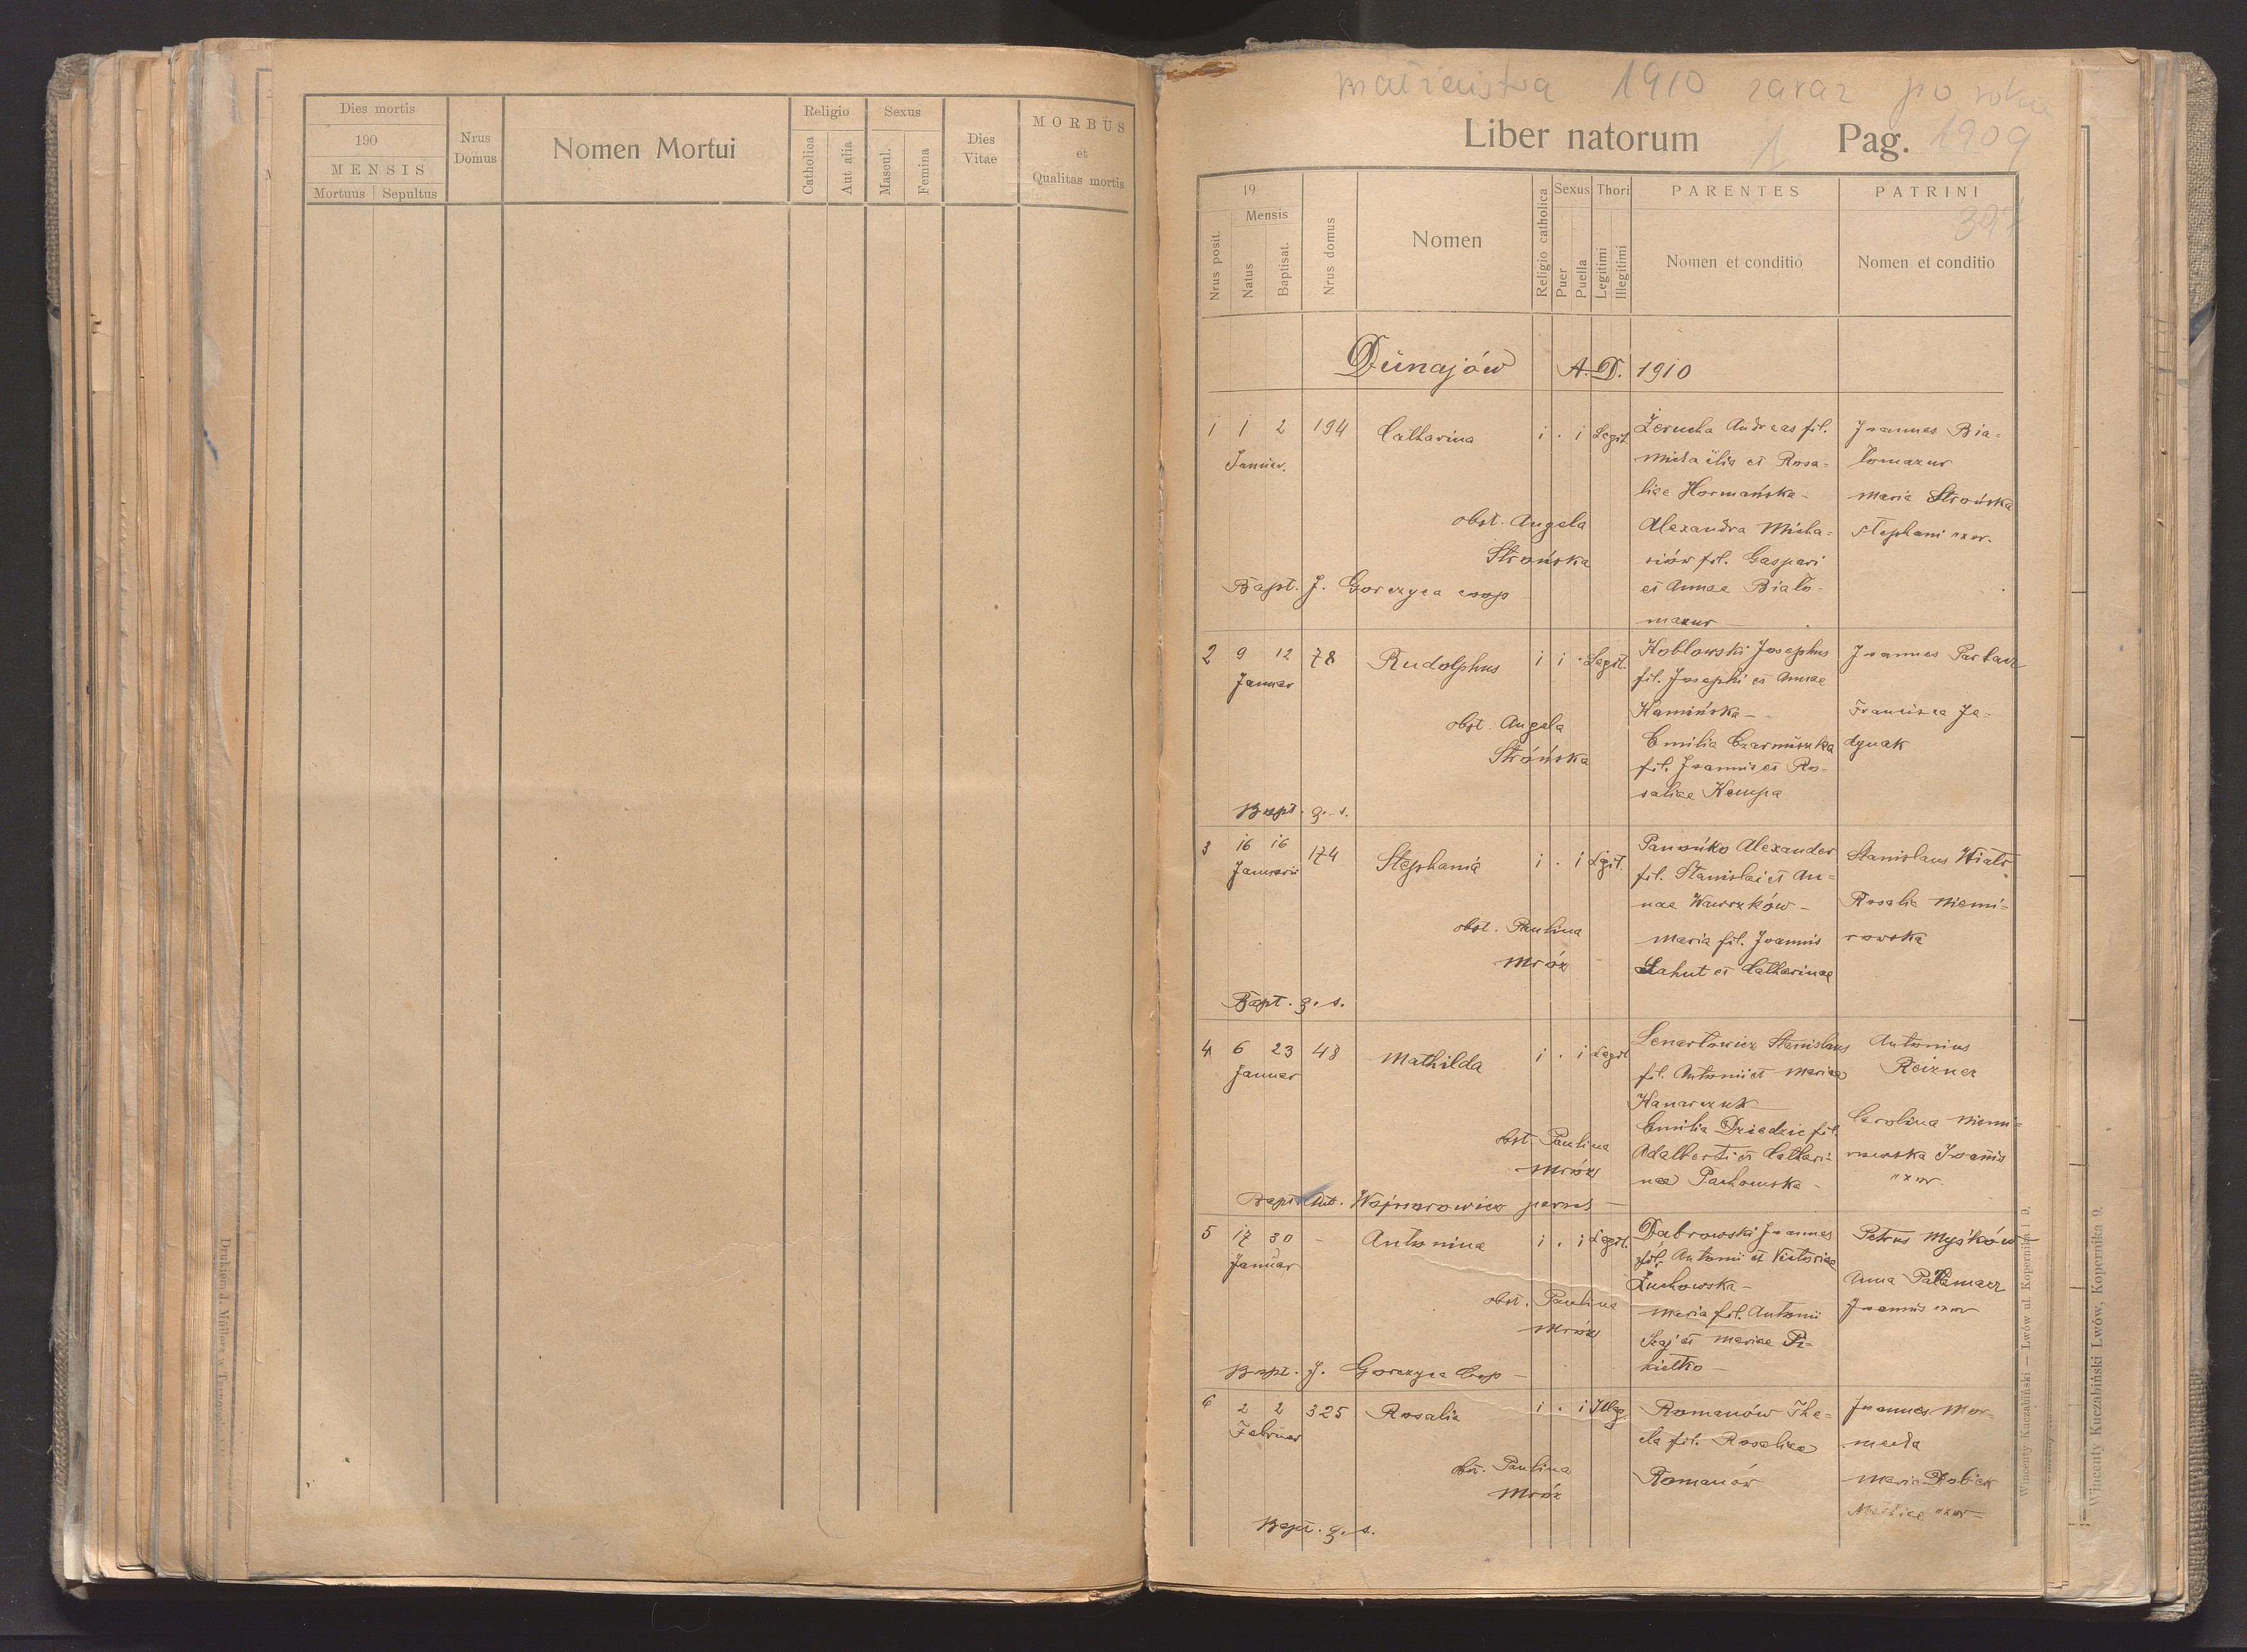 Dies mortis
190
MENSIS
Mortuus Sepultus
Nrus Domus
Nomen Mortui
Religio
Catholica
Aut alia
Sexus
Mascul.
Femina
Dies Vitae
MORBUS
et
Qualitas mortis
małżeństwa 1910 zaraz po roku
1909
Liber natorum 1 Pag.
19
Mensis
Nrus posit.
Natus
Baptisat.
Nrus domus
Nomen
Religio catholica
Sexus
Puer
Puella
Thori
Legitimi
Illegitimi
PARENTES
Nomen et conditio
PATRINI
Nomen et conditio
Dünajów A. D. 1910
1 1 2 194 Catharina i . i Legit. Żerucha Andreas fil. Joannes Bia=
Januar. Michaëlis et Rosa= łomazur
liae Hormańska - Maria Strońska
obst. Angela Alexandra Micha= Stephani uxor.
Strońska niów fil. Gaspari
Bapt. J. Gorczyca coop et Annae Biało-
mazur -
2 9 12 78 Rudolphus i i . Legit. Kobłowski Josephus Joannes Partacz
Januar fil. Josephi et Annae
Kamińska - Francisca Ja=
obst. Angela Emilia Czarnuszka dynak
Strońska fil. Joannis et Ro-
saliae Kempa
Bapt. q. s.
3 16 16 174 Stephania i . i Legit. Panońko Alexander Stanislaus Wiatr
Januarii fil. Stanislai et An=
nae Wawrzków - Rosalia Niemi=
obst. Paulina Maria fil. Joannis rowska
Mróz Łahut et Catharinae
Bapt. q. s.
4 6 23 48 Mathilda i . i Legit Lenartowicz Stanislaus Antonius
Januar fil. Antonii et Mariae Reizner
Kanarczuk -
obst. Paulina Emilia Dziedzic fil. Carolina Niemi=
Mróz Adalberti et Cathari- rowska Joannis
nae Pachowska - uxor.
Bapt. Ant. Wojnarowicz
5 17 30 - Antonina i . i Legit. Dabrowski Joannes Petrus Myśków
Januar fil. Antonii et Victoriae
Żuchowska - Anna Pałamarz
obst. Paulina Maria fil. Antonii Joannis uxor
Mróz et Mariae Pi-
Bapt. J. Gorczyca Coop - kiełko -
6 2 2 325 Rosalia i . i Illeg. Romanów The= Joannes Mor=
Februar cla fil. Rosaliae
obst. Paulina Romanów Maria
Mróz uxor
Bapt. q. s.
Wincenty Kuczabiński — Lwów ul. Kopernika l. 9.
Wincenty Kuczabiński Lwów, Kopernika 9.